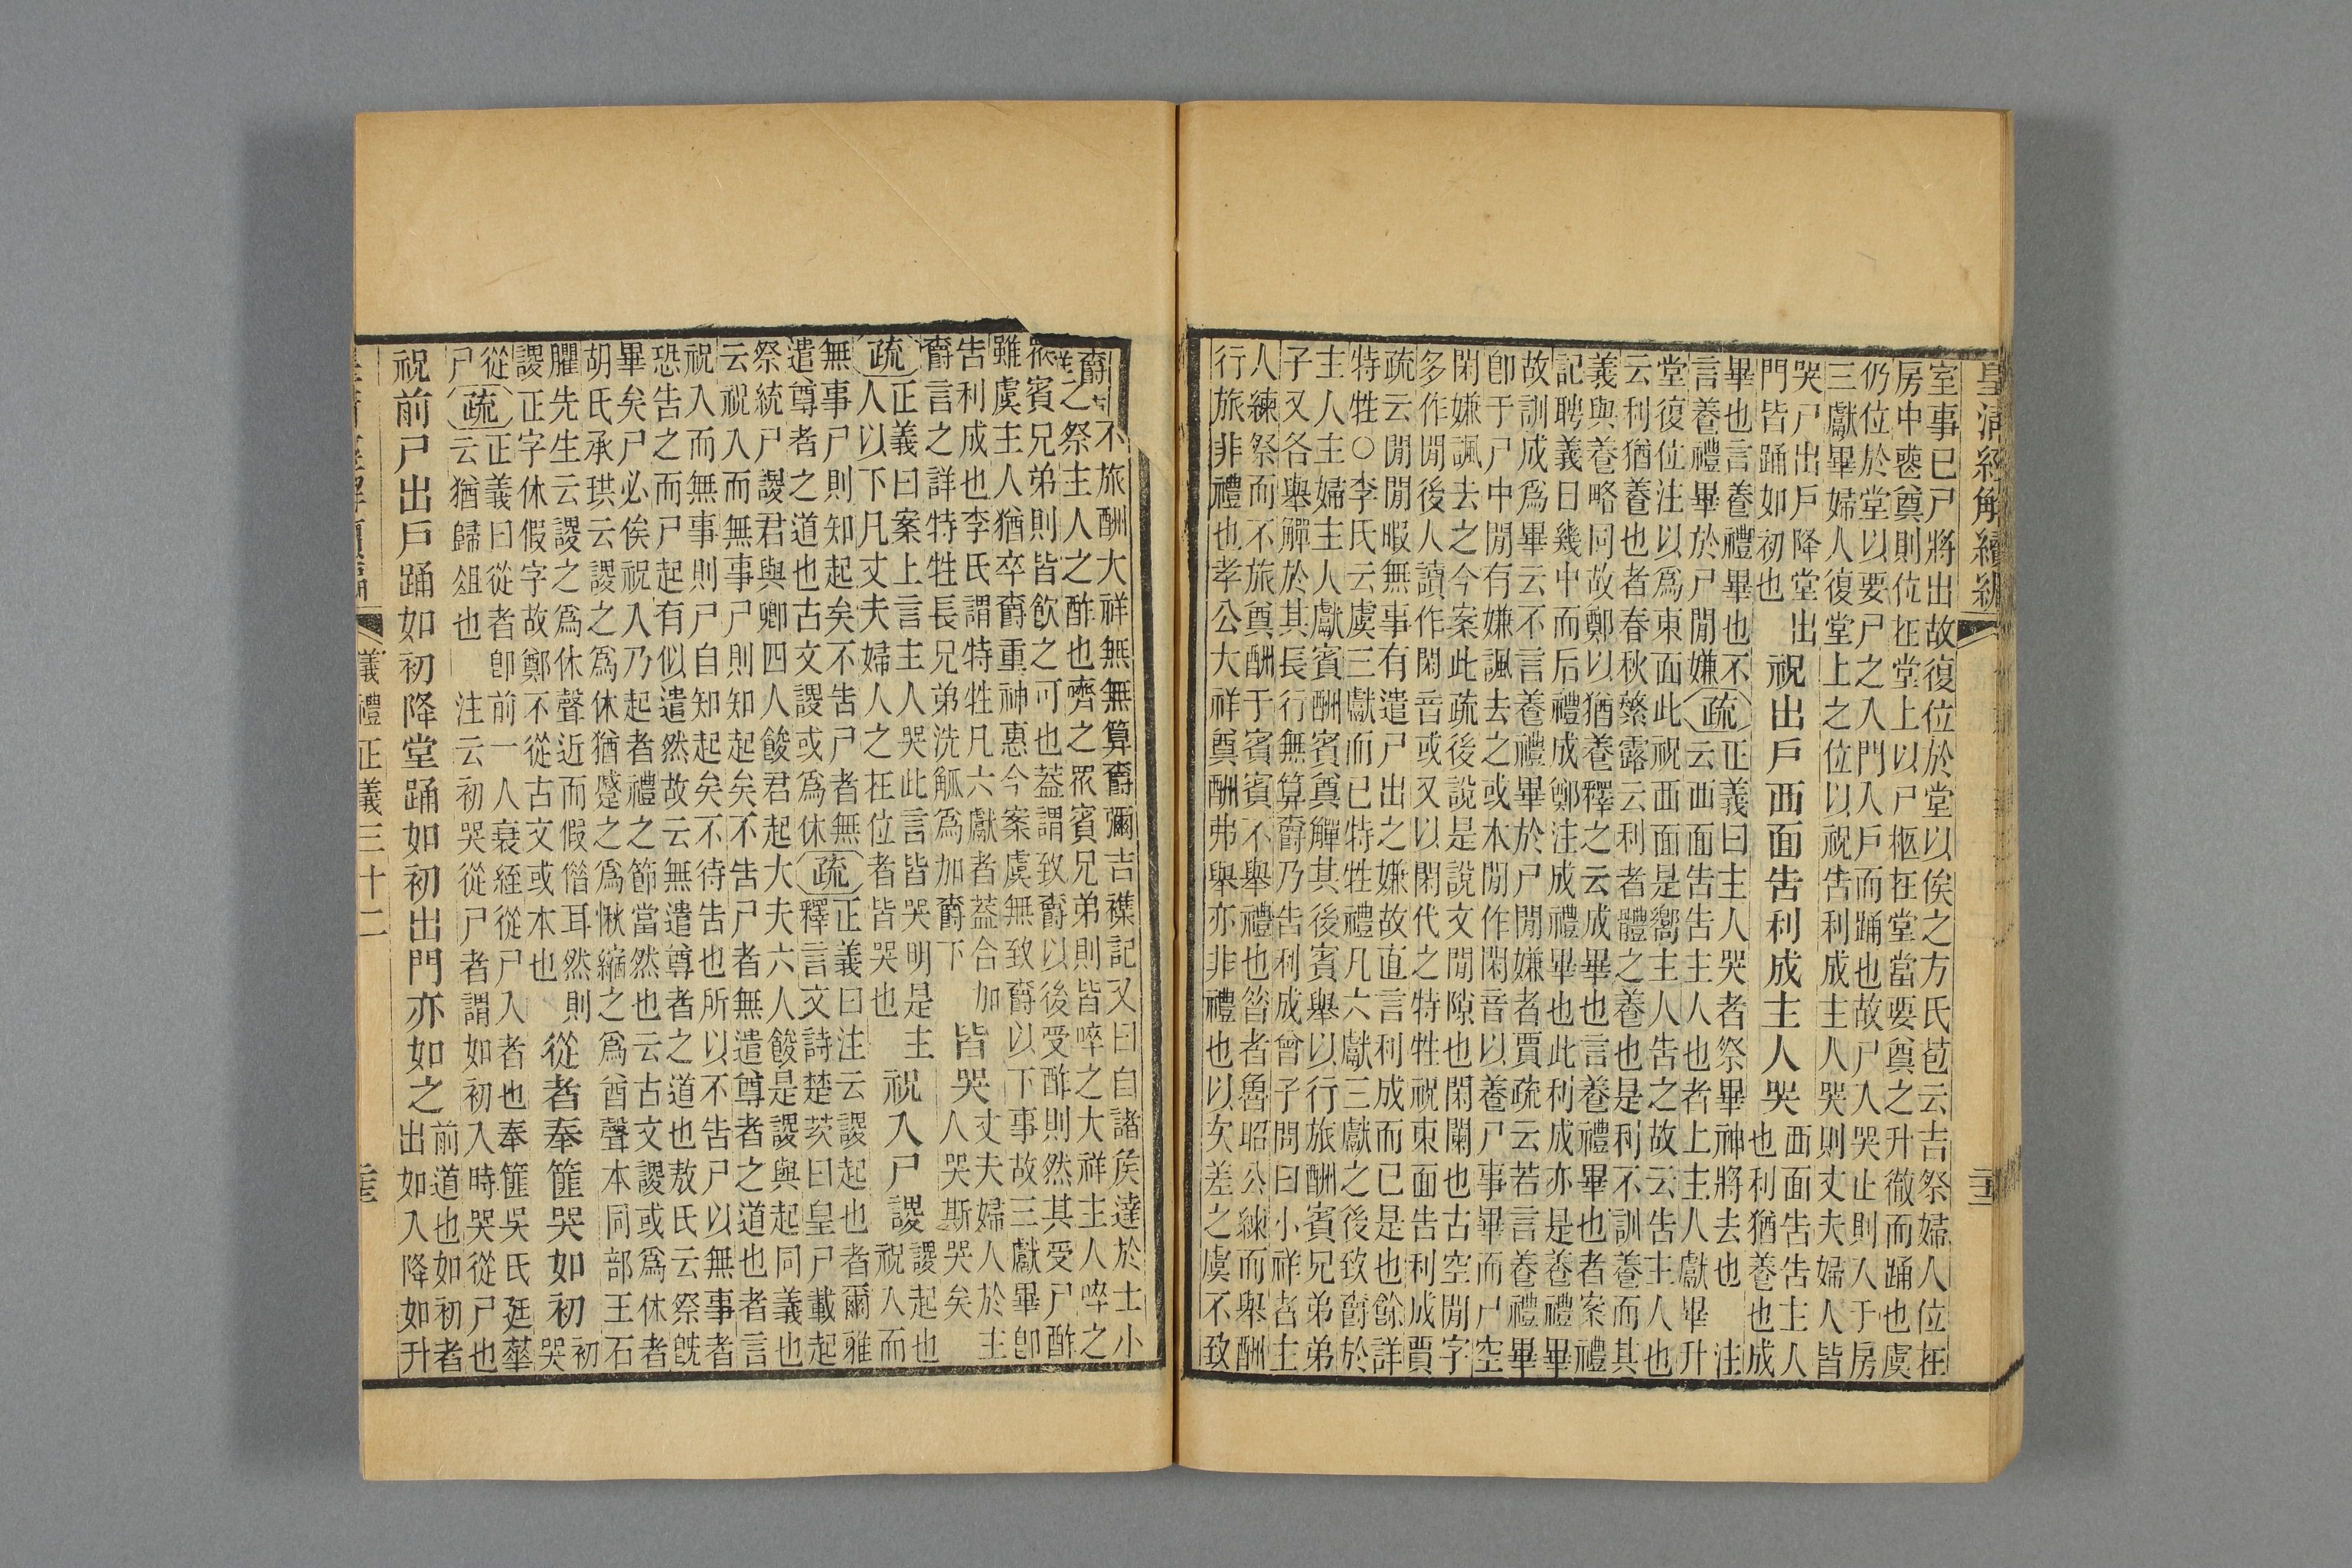 皇清經解續編
室事已尸將出故復位於堂以俟之方氏苞云吉祭婦人位在
房中喪奠則位在堂上以尸柩在堂當要奠之升徹而踊也虞
仍位於堂以要尸之入門入戶而踊也故尸入哭止則人于房
三獻畢婦人復堂上之位以祝告利成主人哭則丈夫婦人皆
哭尸出戶降堂出
門皆踊如初也
祝出戶西面告利成主人哭
西面告告主人
也利猶養也成
畢也言養禮畢也不
言養禮畢於尸閒嫌
疏
正義曰主人哭者祭畢神將去也 注
云西面告告主人也者上主人獻畢升
堂復位注以爲東面此祝西面是嚮主人告之故云告主人也
云利猶養也者春秋繁露云利者體之養也是利不訓養而其
義與養略同故鄭以猶養釋之云成畢也言養禮畢也者案禮
記聘義曰幾中而后禮成鄭注成禮畢也此利成亦是養禮畢
故訓成爲畢云不言養禮畢於尸閒嫌者賈疏云若言養禮畢
卽于尸中閒有嫌諷去之或本閒作閑音以養尸事畢而尸空
閑嫌諷去之今案此疏後說是說文閒隙也閑闌也古空閒字
多作閒後人讀作閑音或又以閑代之特牲祝東面告利成賈
疏云閒閒暇無事有遣尸出之嫌故直言利成而已是也餘詳
特牲○李氏云虞三獻而已特牲禮凡六獻三獻之後致爵於
主人主婦主人獻賓酬賓奠觶其後賓舉以行旅酬賓兄弟弟
子又各舉觶於其長行無算爵乃告利成曾子問曰小祥者主
人練祭而不旅奠酬于賓賓不舉禮也昔者魯昭公練而舉酬
行旅非禮也孝公大祥奠酬弗舉亦非禮也以次差之虞不致
爵不旅酬大祥無無算爵彌吉襍記又曰自諸侯達於士小
祥之祭主人之酢也嚌之眾賓兄弟則皆啐之大祥主人啐之
眾賓兄弟則皆飲之可也蓋謂致爵以後受酢則然其受尸酢
雖虞主人猶卒爵重神惠今案虞無致爵以下事故三獻畢卽
告利成也李氏謂特牲凡六獻者蓋合加
爵言之詳特牲長兄弟洗觚爲加爵下
皆哭
丈夫婦人於主
人哭斯哭矣
疏
正義曰案上言主人哭此言皆哭明是主
人以下凡丈夫婦人之在位者皆哭也
祝入尸謖
謖起也
祝入而
無事尸則知起矣不告尸者無
遣尊者之道也古文謖或爲休
疏
正義曰注云謖起也者爾雅
釋言文詩楚茨曰皇尸載起
祭統尸謖君與卿四人餕君起大夫六人餕是謖與起同義也
云祝入而無事尸則知起矣不告尸者無遣尊者之道也者言
祝入而無事則尸自知起矣不待告也所以不告尸以無事者
恐告之而尸起有似遣然故云無遣尊者之道也敖氏云祭旣
畢矣尸必俟祝入乃起者禮之節當然也云古文謖或爲休者
胡氏承珙云謖之爲休猶蹙之爲愀縮之爲酋聲本同部王石
臞先生云謖之爲休聲近而假借耳然則
謖正字休假字故鄭不從古文或本也
從者奉篚哭如初
初
哭
從
尸
疏
正義曰從者卽前一人衰絰從尸入者也奉篚吳氏廷華
云猶歸俎也 注云初哭從尸者謂如初入時哭從尸也
祝前尸出戶踊如初降堂踊如初出門亦如之
前道也如初者
出如入降如升
儀禮正義三十二